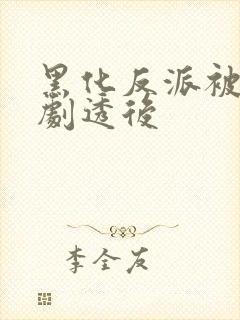 黑化反派被
劇透後
李全友